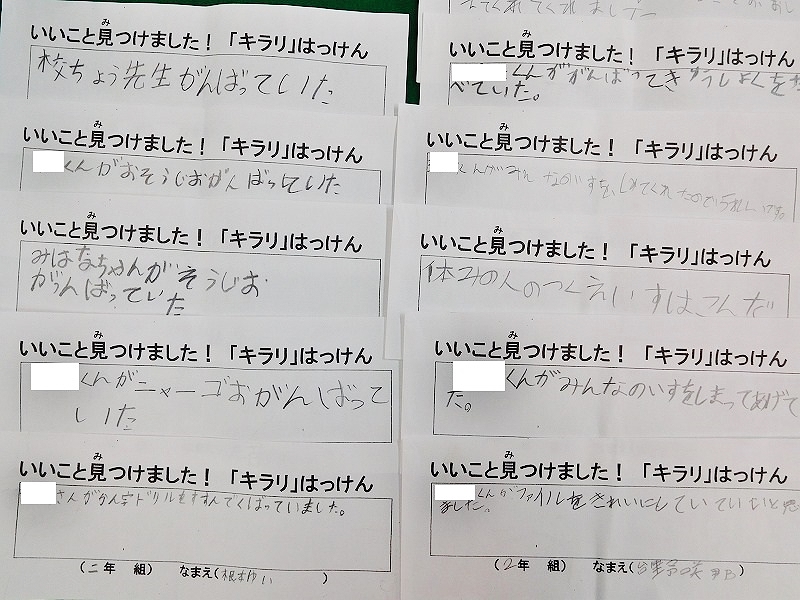 いいこと見つけました！「キラリ」はっけん
校ちょう先生がんばっていた
いいこと見つけました！「キラリ」はっけん
くんがおそうじおがんばっていた
いいこと見つけました！「キラリ」はっけん
みはなちゃんがそうじお
がんばっていた
いいこと見つけました！「キラリ」はっけん
くんがニャーゴおがんばって
いた
いいこと見つけました！「キラリ」はっけん
さんがかん字ドリルをすすんでくばっていました。
(二年 組) なまえ( )
いいこと見つけました！「キラリ」はっけん
くんががんばってきゅうしょくをた
べていた。
いいこと見つけました！「キラリ」はっけん
くんがみんなのいすを、しめてくれたので
いいこと見つけました！「キラリ」はっけん
休みの人のつくえいすはこんだ
いいこと見つけました！「キラリ」はっけん
くんがみんなのいすをしまってあげて
た。
いいこと見つけました！「キラリ」はっけん
くんがファイルをきれいにしていて
ました。
(2年 組) なまえ( )